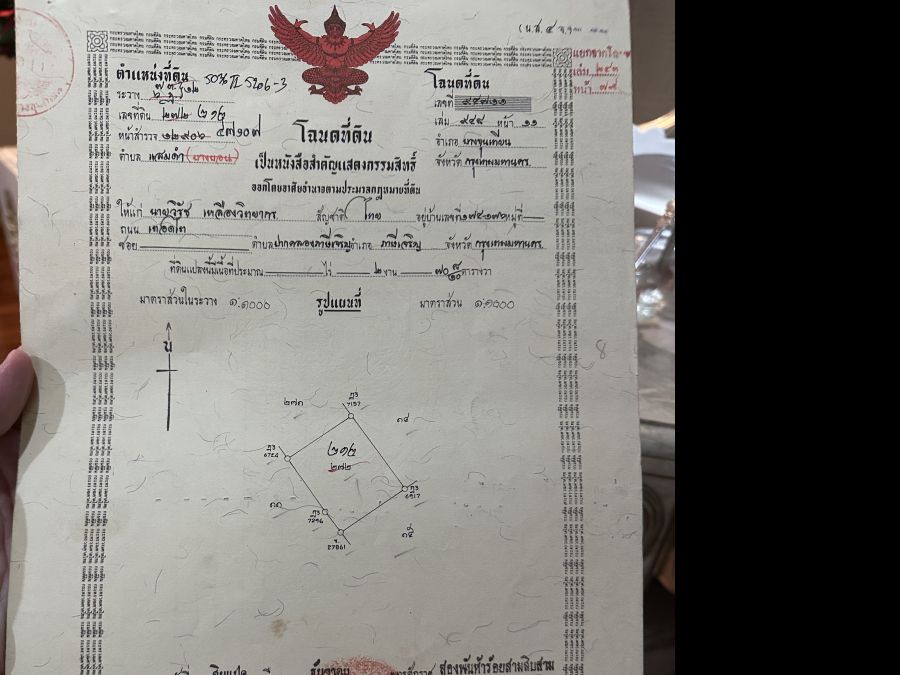 (น.ส. ๔ จ.)
แยกจากโฉนด
เล่ม ๒๔๓
หน้า ๗๗
ตำแหน่งที่ดิน 5036 II 5206-3
ระวาง
เลขที่ดิน ๒๗๒ ๒๑๖
หน้าสำรวจ ๑๒๙๐๖ ๔๗๑๐๙
ตำบล แสมดำ (บางบอน)
โฉนดที่ดิน
เลขที่ ๙๔๗๑๑
เล่ม ๙๔๘ หน้า ๑๑
อำเภอ บางขุนเทียน
จังหวัด กรุงเทพมหานคร
โฉนดที่ดิน
เป็นหนังสือสำคัญแสดงกรรมสิทธิ์
ออกโดยอาศัยอำนาจตามประมวลกฎหมายที่ดิน
ให้แก่ นายวิรัช เหลืองวิทยากร สัญชาติ ไทย อยู่บ้านเลขที่ ๑๗๔,๑๗๖ หมู่ที่
ถนน เทอดไท
ซอย ตำบล ปากคลองภาษีเจริญ อำเภอ ภาษีเจริญ จังหวัด กรุงเทพมหานคร
ที่ดินแปลงนี้มีเนื้อที่ประมาณ ไร่ ๒ งาน ๗๐ ตารางวา
มาตราส่วนในระวาง ๑:๑๐๐๐ รูปแผนที่ มาตราส่วน ๑:๑๐๐๐
8
น
๒๗๑
7157
๑๔
๒๑๖
๒๗๒
6724
6917
๑๑
7296
๑๕
27861
ธันวาคม
สองพันห้าร้อยสามสิบสาม